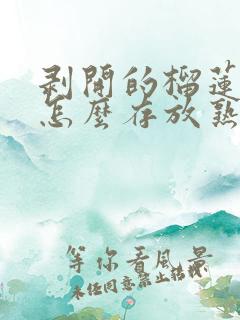 剥開的榴蓮
怎麽存放熟
等你看風景
未经同意禁止转载